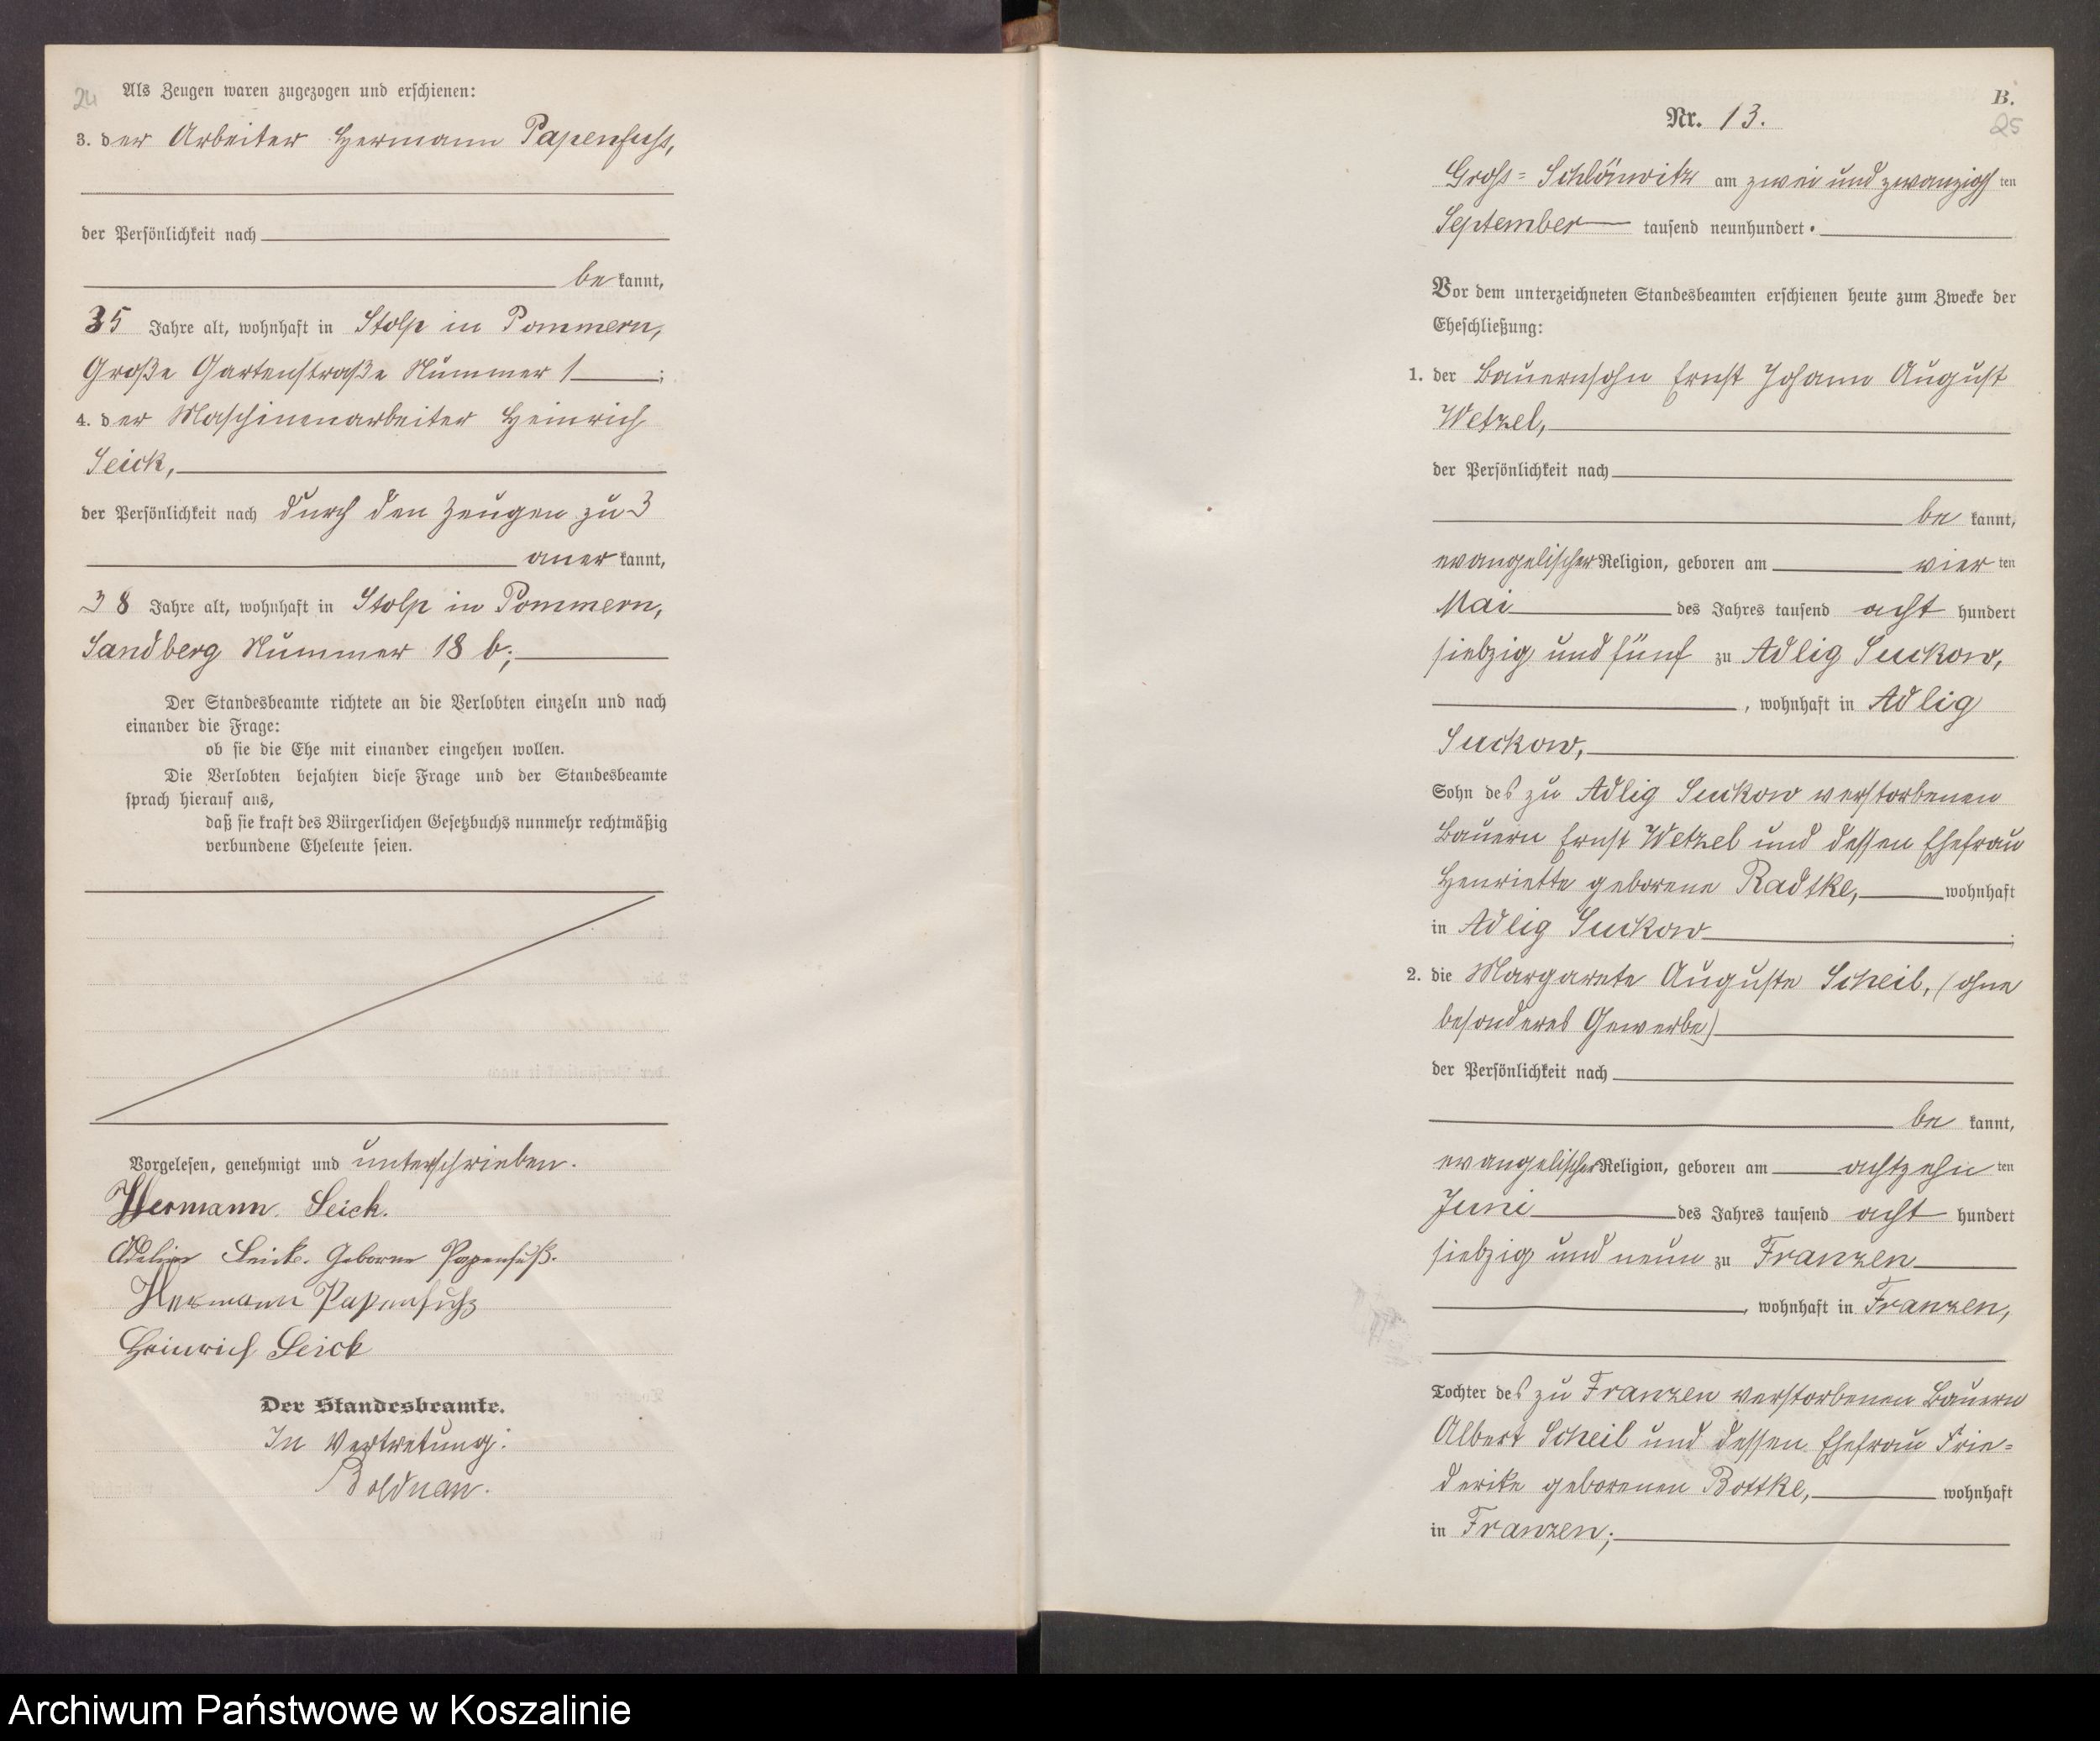 24
Als Zeugen waren zugezogen und erschienen:
3. der Arbeiter Hermann Papenfuss,
der Persönlichkeit nach
be kannt,
35 Jahre alt, wohnhaft in Stolp in Pommern,
Große Gartenstraße Nummer 1 ;
4. der Maschinenarbeiter Heinrich
Seick,
der Persönlichkeit nach durch den Zeugen zu 3
aner kannt,
38 Jahre alt, wohnhaft in Stolp in Pommern,
Sandberg Nummer 18 b;
Der Standesbeamte richtete an die Verlobten einzeln und nach
einander die Frage:
ob sie die Ehe mit einander eingehen wollen.
Die Verlobten bejahten diese Frage und der Standesbeamte
sprach hierauf aus,
daß sie kraft des Bürgerlichen Gesetzbuchs nunmehr rechtmäßig
verbundene Eheleute seien.
Vorgelesen, genehmigt und unterschrieben.
Hermann Seick.
Seick. Geborne Papenfuß.
Hermann Papenfuhs
Heinrich Seick
Der Standesbeamte.
In Vertretung:
Bolduan.
B.
25
Nr. 13.
Gross-Schlönwitz am zwei und zwanzigsten
September tausend neunhundert
Vor dem unterzeichneten Standesbeamten erschienen heute zum Zwecke der
Eheschließung:
1. der Bauernsohn Ernst Johann August
Wetzel,
der Persönlichkeit nach
be kannt,
evangelischer Religion, geboren am vier ten
Mai des Jahres tausend acht hundert
siebzig und fünf zu Adlig Suckow,
, wohnhaft in Adlig
Suckow,
Sohn des zu Adlig Suckow verstorbenen
Bauern Ernst Wetzel und dessen Ehefrau
Henriette geborene Radtke, wohnhaft
in Adlig Suckow ;
2. die Margarete Auguste Scheil, (ohne
besonderes Gewerbe)
der Persönlichkeit nach
be kannt,
evangelischer Religion, geboren am achtzehn ten
Juni des Jahres tausend acht hundert
siebzig und neun zu Franzen
, wohnhaft in Franzen,
Tochter des zu Franzen verstorbenen Bauern
Albert Scheil und dessen Ehefrau Frie-
derike geborenen Bottke, wohnhaft
in Franzen;
Archiwum Państwowe w Koszalinie